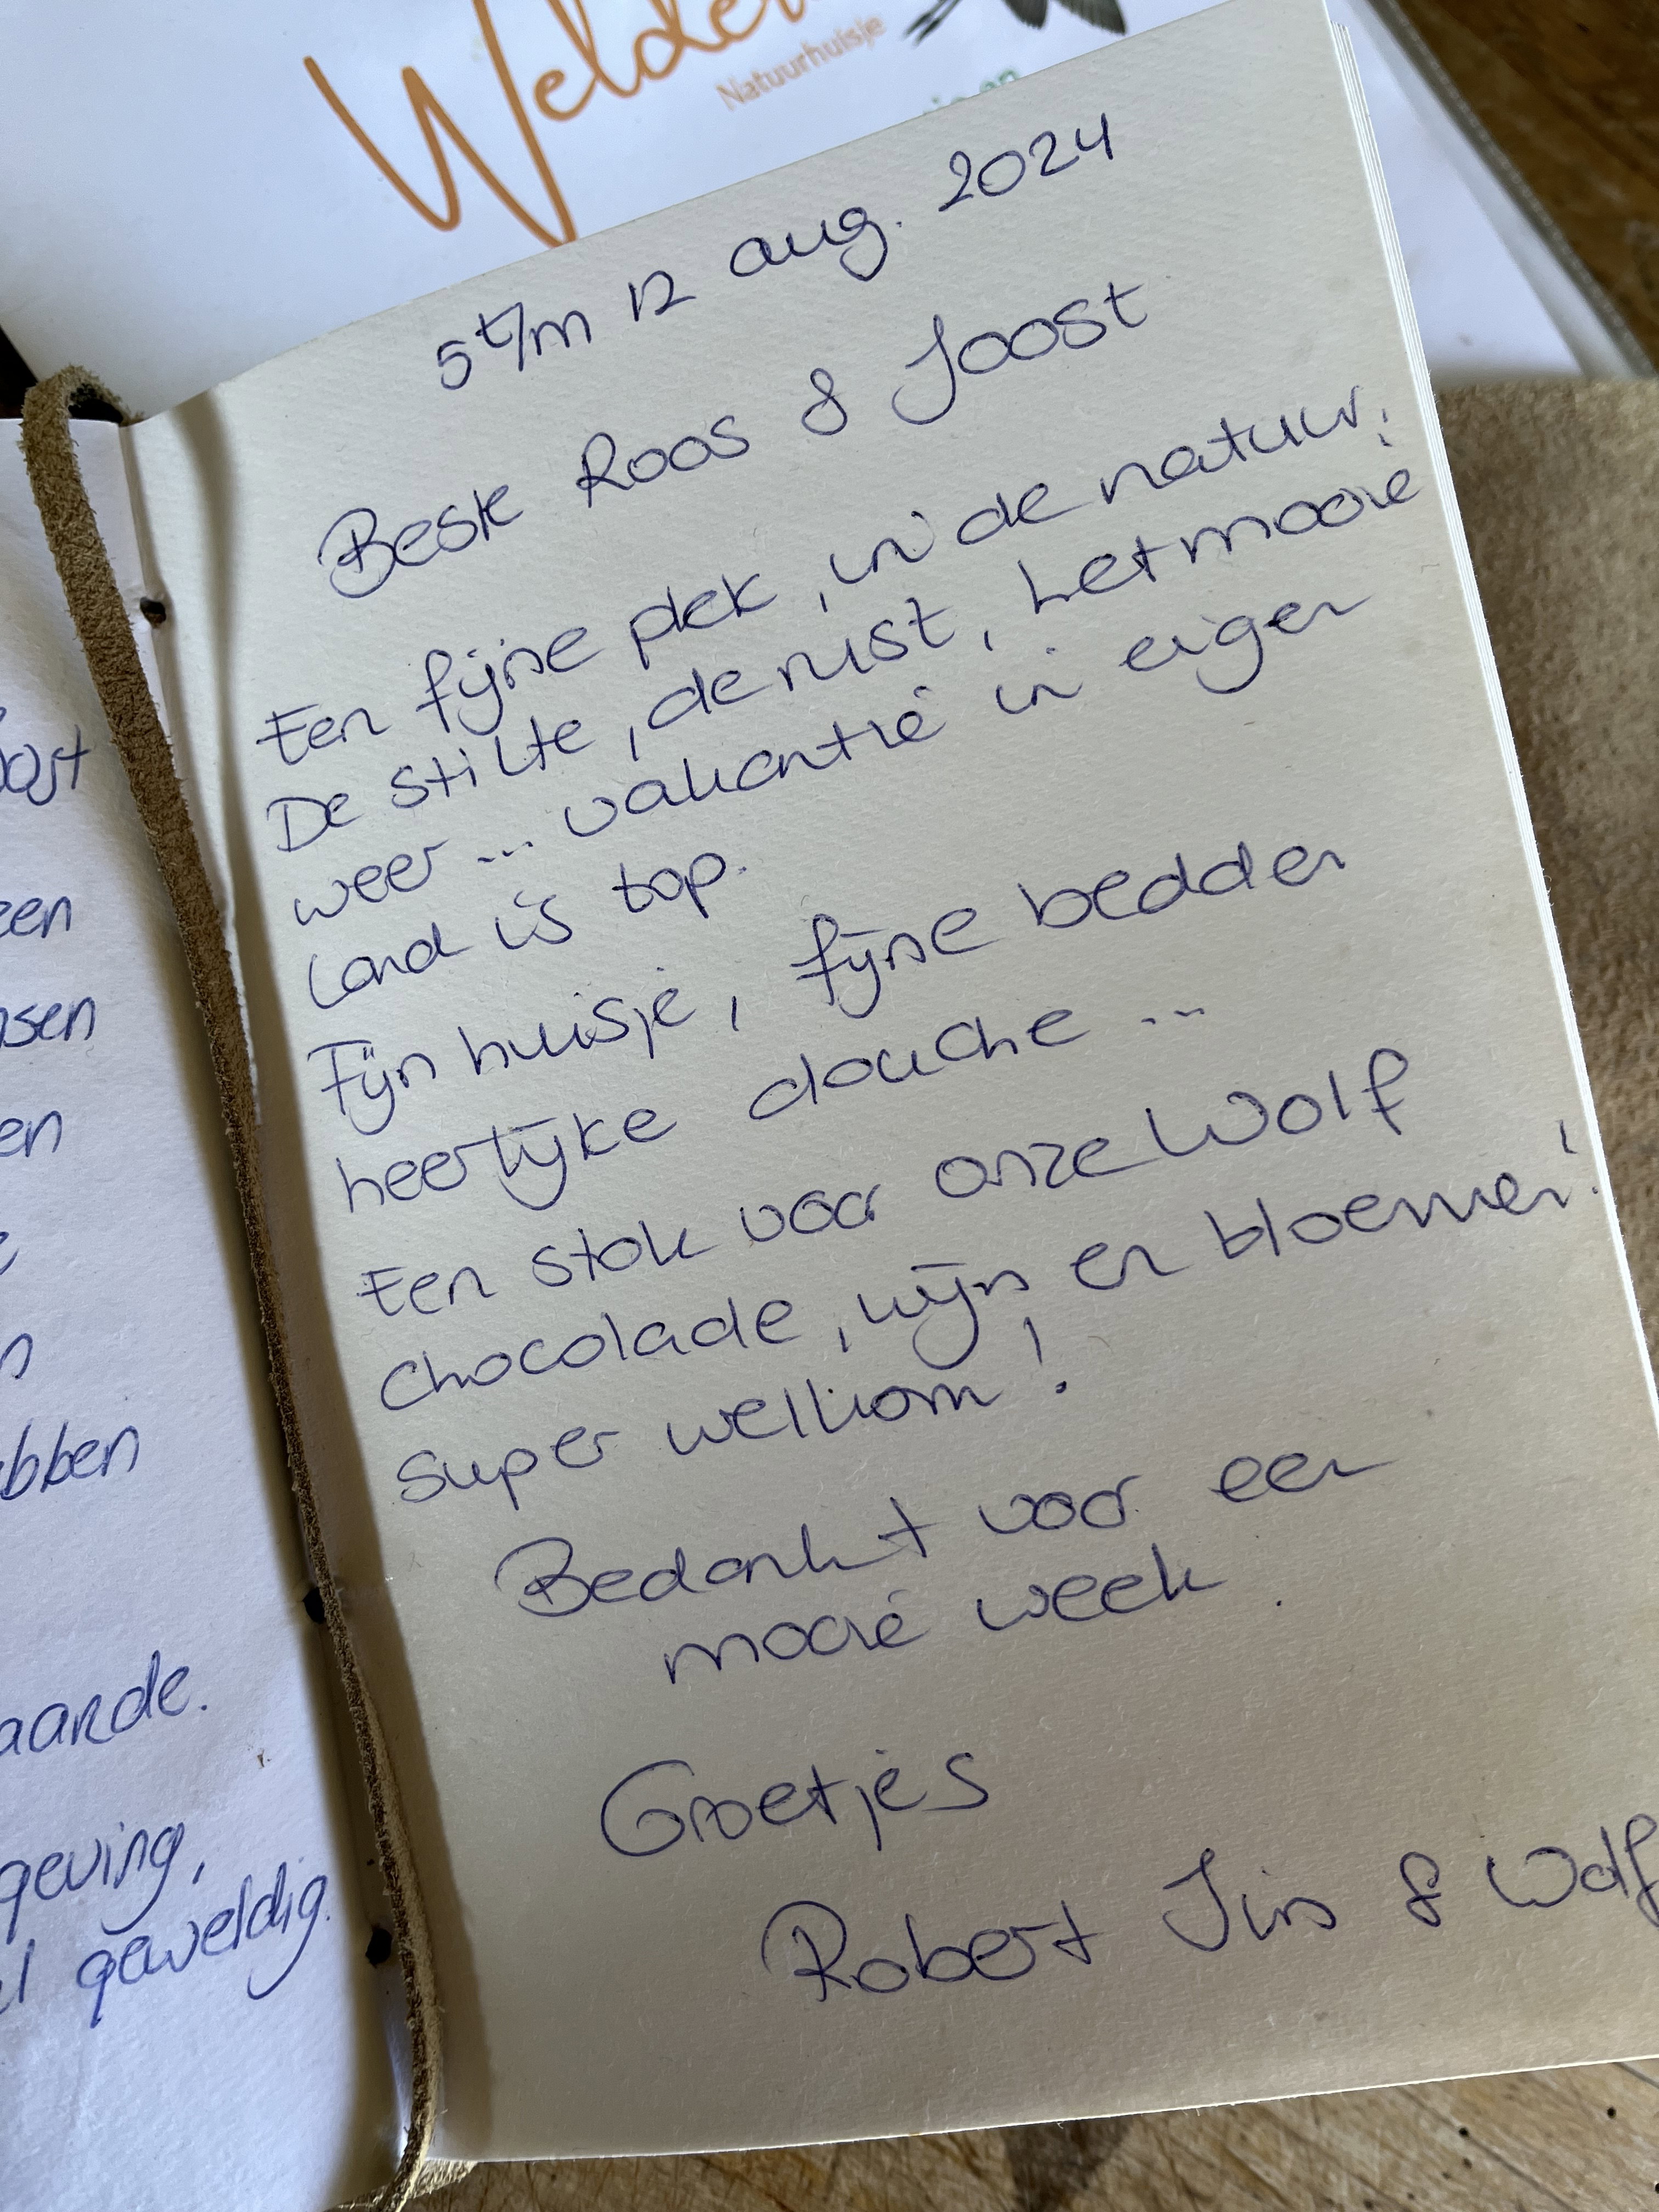 Welde
Natuurhuisje
5 t/m 12 aug. 2024
Beste Roos & Joost
Een fijne plek, in de natuur.
De stilte, de rust, het mooie
weer ... vakantie in eigen
Land is top.
Fijn huisje, fijne bedden
heerlijke douche ...
Een stok voor onze Wolf
chocolade, wijn en bloemen!
Super welkom!
Bedankt voor een
mooie week.
Groetjes
Robert & Wolf
een
en
bben
aarde.
geving,
geweldig.